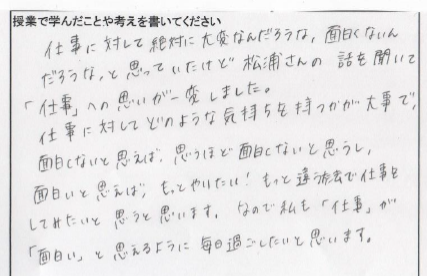 授業で学んだことや考えを書いてください
仕事に対して絶対に大変なんだろうな，面白くないん
だろうな，と思っていたけど松浦さんの話を聞いて
「仕事」への思いが一変しました。
仕事に対してどのような気持ちを持つかが大事で，
面白くないと思えば，思うほど面白くないと思うし，
面白いと思えば，もっとやりたい！もっと違う方法で仕事を
してみたいと思うと思います。なので私も「仕事」が
「面白い」と思えるように毎日過ごしたいと思います。